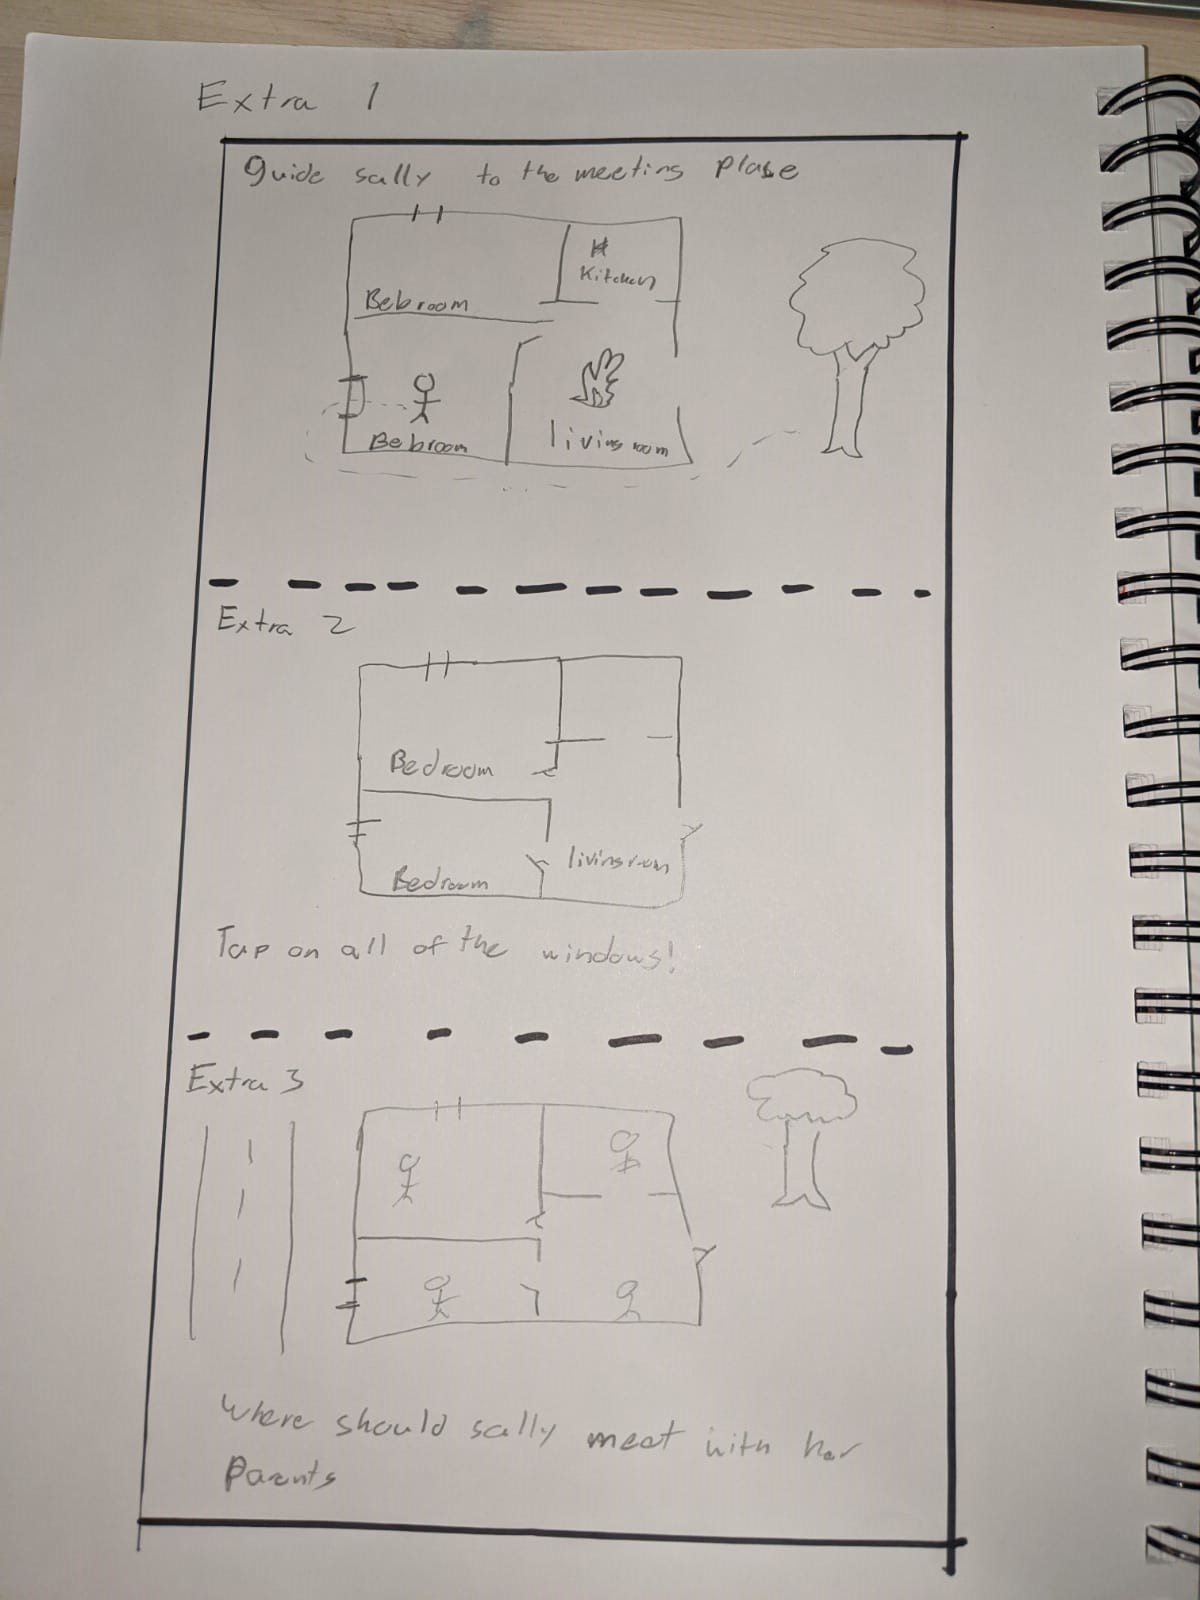 Extra 1
Guide sally to the meeting plase
Kitchen
Bebroom
Bebroom
livingroom
Extra 2
Bedroom
livingroom
Bedroom
Tap on all of the windows!
Extra 3
Where should sally meet with her
Parents